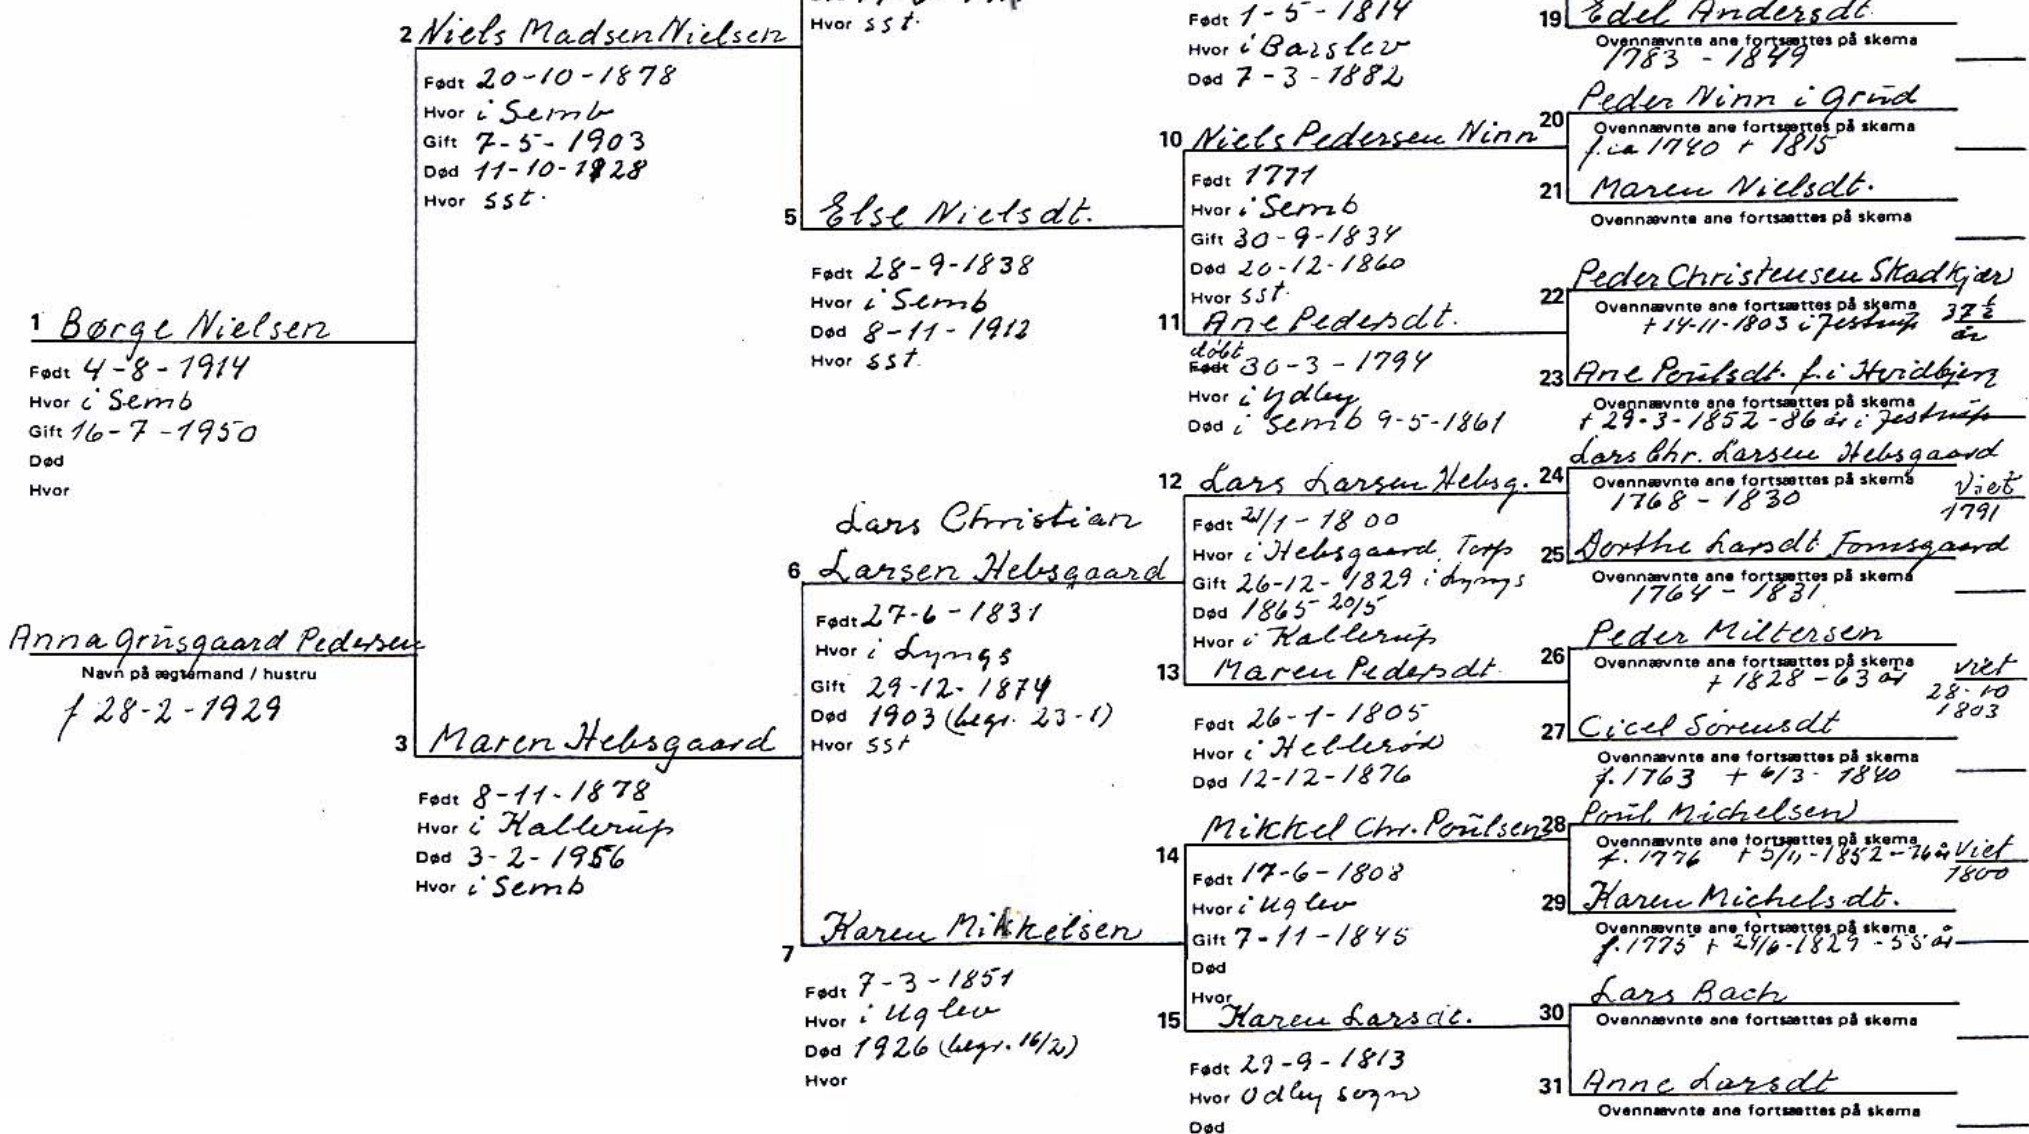 1 Børge Nielsen
Født 4-8-1914
Hvor i Semb
Gift 16-7-1950
Død
Hvor
Anna Grüsgaard Pedersen
Navn på ægtemand / hustru
f 28-2-1929
2 Niels Madsen Nielsen
Født 20-10-1878
Hvor i Semb
Gift 7-5-1903
Død 11-10-1928
Hvor sst.
3 Maren Hebsgaard
Født 8-11-1878
Hvor i Kallerup
Død 3-2-1956
Hvor i Semb
Hvor sst.
5 Else Nielsdt.
Født 28-9-1838
Hvor i Semb
Død 8-11-1912
Hvor sst.
Lars Christian
6 Larsen Hebsgaard
Født 27-6-1831
Hvor i Lyngs
Gift 29-12-1874
Død 1903 (begr. 23-1)
Hvor sst
7 Karen Mikkelsen
Født 7-3-1851
Hvor i Uglev
Død 1926 (begr. 16/2)
Hvor
Født 1-5-1814
Hvor i Barslev
Død 7-3-1882
10 Niels Pedersen Ninn
Født 1771
Hvor i Semb
Gift 30-9-1834
Død 20-12-1860
Hvor sst.
11 Ane Pedersdt.
døbt
Født 30-3-1794
Hvor i Ydby
Død i Semb 9-5-1861
12 Lars Larsen Hebsg.
Født 21/1-1800
Hvor i Hebsgaard, Torp
Gift 26-12-1829 i Lyngs
Død 1865 20/5
Hvor i Kallerup
13 Maren Pedersdt.
Født 26-1-1805
Hvor i Hellerød
Død 12-12-1876
14 Mikkel Chr. Poülsen
Født 17-6-1808
Hvor i Uglev
Gift 7-11-1845
Død
Hvor
15 Karen Larsdt.
Født 29-9-1813
Hvor Odby sogn
Død
19 Edel Andersdt.
Ovennævnte ane fortsættes på skema
1783 - 1849
20 Peder Ninn i Grüd
Ovennævnte ane fortsættes på skema
f. ca 1740 + 1815
21 Maren Nielsdt.
Ovennævnte ane fortsættes på skema
22 Peder Christensen Skadkjær
Ovennævnte ane fortsættes på skema
+ 14-11-1803 i Jestrup 37 ½ år
23 Ane Poülsdt. f. i Hvidbjerg
Ovennævnte ane fortsættes på skema
+ 29-3-1852 - 86 år i Jestrup
24 Lars Chr. Larsen Hebsgaard
Ovennævnte ane fortsættes på skema
1768 - 1830 Viet 1791
25 Dorthe Larsdt Tomsgaard
Ovennævnte ane fortsættes på skema
1764 - 1831
26 Peder Miltersen
Ovennævnte ane fortsættes på skema
+ 1828 - 63 år viet 28-10 1803
27 Cicel Sörensdt
Ovennævnte ane fortsættes på skema
f. 1763 + 6/3 - 1840
28 Poül Michelsen
Ovennævnte ane fortsættes på skema
f. 1776 + 5/11-1852 - 76 år Viet 1800
29 Karen Michelsdt.
Ovennævnte ane fortsættes på skema
f. 1775 + 24/6-1829 - 55 år
30 Lars Bach
Ovennævnte ane fortsættes på skema
31 Anne Larsdt
Ovennævnte ane fortsættes på skema